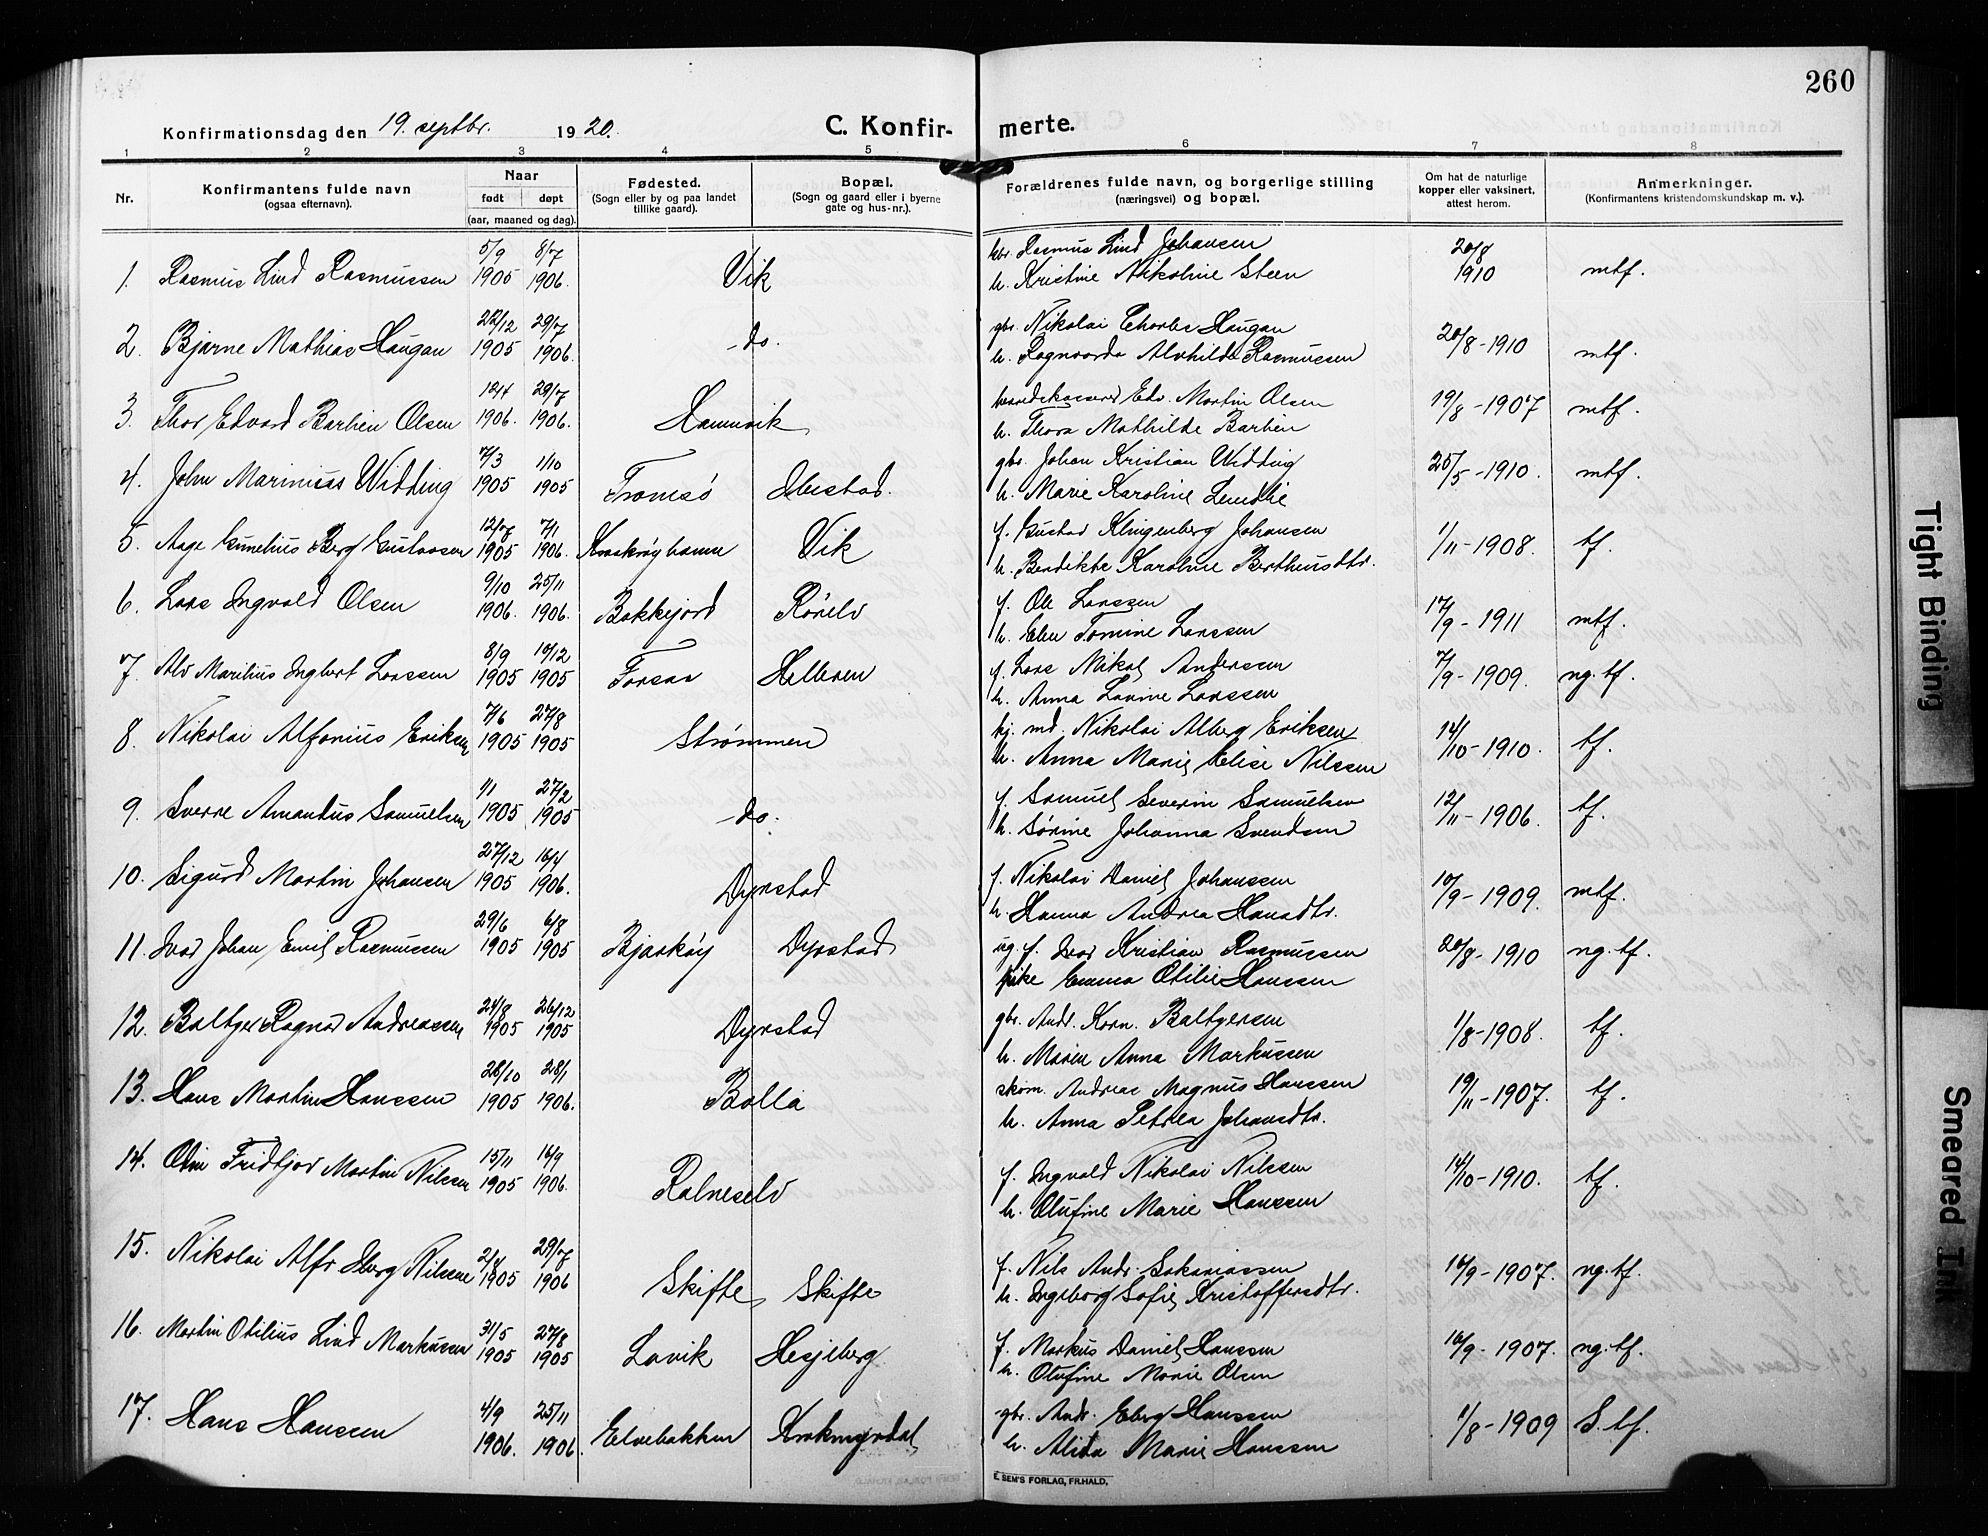 260
Konfirmationsdag den 19. septbr. 1920.
C. Konfirmerte.
1 2 3 4 5 6 7 8
Nr.
Konfirmantens fulde navn
(ogsaa efternavn).
Naar
født døpt
(aar, maaned og dag).
Fødested.
(Sogn eller by og paa landet
tillike gaard).
Bopæl.
(Sogn og gaard eller i byerne
gate og hus-nr.).
Forældrenes fulde navn, og borgerlige stilling
(næringsvei) og bopæl.
Om hat de naturlige
kopper eller vaksinert,
attest herom.
Anmerkninger.
(Konfirmantens kristendomskundskap m. v.).
5/9 8/7 Rasmus Lind Johansen 20/8
1. Rasmus Lind Rasmussen 1905 1906. Vik h. Kristine Nikoline Steen 1910 mtf.
22/12 29/7 gbr. Nikolai Charles Haugan
2. Bjarne Mathias Haugan 1905 1906. -do. h. Ragnarda Alvhilde Rasmussen 20/8-1910 mtf.
12/4 29/7 Edv. Martin Olsen
3. Thor Edvard Barhien Olsen 1906. 1906. Hamnvik h. Thora Mathilde Barhien 19/8-1907 mtf.
7/3 1/10 gbr. Johan Kristian Widding
4. John Marinius Widding 1905 1905 Tromsö Ibestad. h. Marie Karoline Lundlie 25/5-1910. mtf.
12/7 7/1 f. Gustav Klingenberg Johansen
5. Aage Gunelius Berg Gustavsen 1905 1906. Kraakrøyhamn Vik h. Bendikte Karoline Bertheusdtr. 1/11-1908. tf.
9/10 25/11 f. Ole Larssen
6. Lars Ingvald Olsen 1906. 1906. Bakkejord Rörelv h. Elen Tomine Larssen 17/9-1911 mtf.
8/9 10/12 f. Lars Nikol. Anderssen
7. Alv Marilius Ingbert Larssen 1905 1905 Forsaa Helleren h. Anna Lovine Larssen 7/9-1909. ng. tf.
7/6 27/8 kj. md. Nikolai Alberg Eriksen
8. Nikolai Alfonius Eriksen 1905 1905 Strømmen h. Anna Marie Elise Nilssen 14/10-1910. tf.
1/1 27/2 f. Samuel Severin Samuelsen
9. Sverre Amandus Samuelsen 1905 1905 -do. h. Sørine Johanna Svendsen 12/11-1906. tf.
27/12 16/4 f. Nikolai Daniel Johanssen
10. Sigurd Martin Johansen 1905 1906. Dyrstad h. Hanna Andrea Hansdtr. 10/9-1909. mtf.
29/6 6/8 ug. f. Ivar Kristian Rasmussen
11. Ivar Johan Emil Rasmussen 1905 1905 Bjarkøy Dyrstad pike Emma Otilie Hanssen 20/8-1910 ng. tf.
24/8 26/12 gbr. Andr. Korn. Baltzersen
12. Baltzer Ragnar Andreassen 1905 1905 Dyrstad h. Maren Anna Markussen 1/8-1908. tf.
28/10 28/1 skom. Andreas Magnus Hanssen
13. Hans Martin Hanssen 1905 1906. Bolla h. Anna Petrea Johansdtr. 19/11-1907. tf.
15/11 16/9 f. Ingvald Nikolai Nilssen
14. Odin Fridtjov Martin Nilssen 1905 1906. Rolneselv h. Olufine Marie Hanssen 14/10-1910. tf.
2/4 29/7 f. Nils Andr. Sakariassen
15. Nikolai Alfr. Nilssen 1905 1906 Skifte Skifte h. Ingeborg Sofie Kristoffersdtr. 16/9-1907. ng. tf.
31/5 27/8 f. Markus Daniel Hanssen
16. Martin Otilius Lind Markussen 1905 1905 Lavik Hesjeberg h. Olufine Marie Olsen 16/9-1907. ng. tf.
4/9 25/11 gbr. Andr. Eberg Hanssen
17. Hans Hanssen 1906. 1906. Elvebakken Krokmyrdal h. Alida Marie Hanssen 1/8-1909 S. tf.
E. SEM'S FORLAG, FR.HALD.
Tight Binding
Smeared Ink